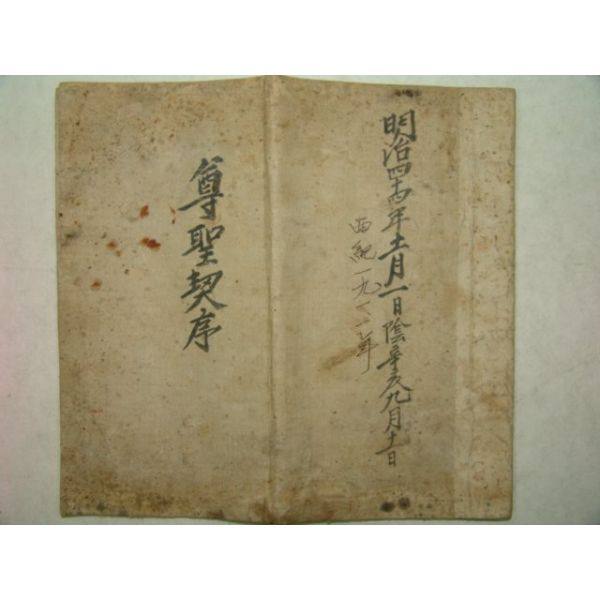 明治四十四年十一月一日陰辛亥九月十一日
西紀一九一一年
尊聖契序